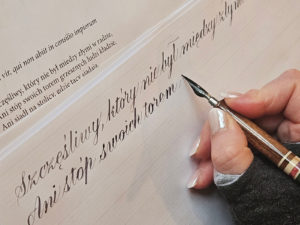 vir, qui non abiit in consilio impiorum
Szczęśliwy, który nie był między złymi w radzie,
Ani stóp swoich torem grzesznych ludzi kładzie,
Ani siadł na stolicy, gdzie tacy siadają
Szczęśliwy, który nie był między złym
Ani stóp swoich torem